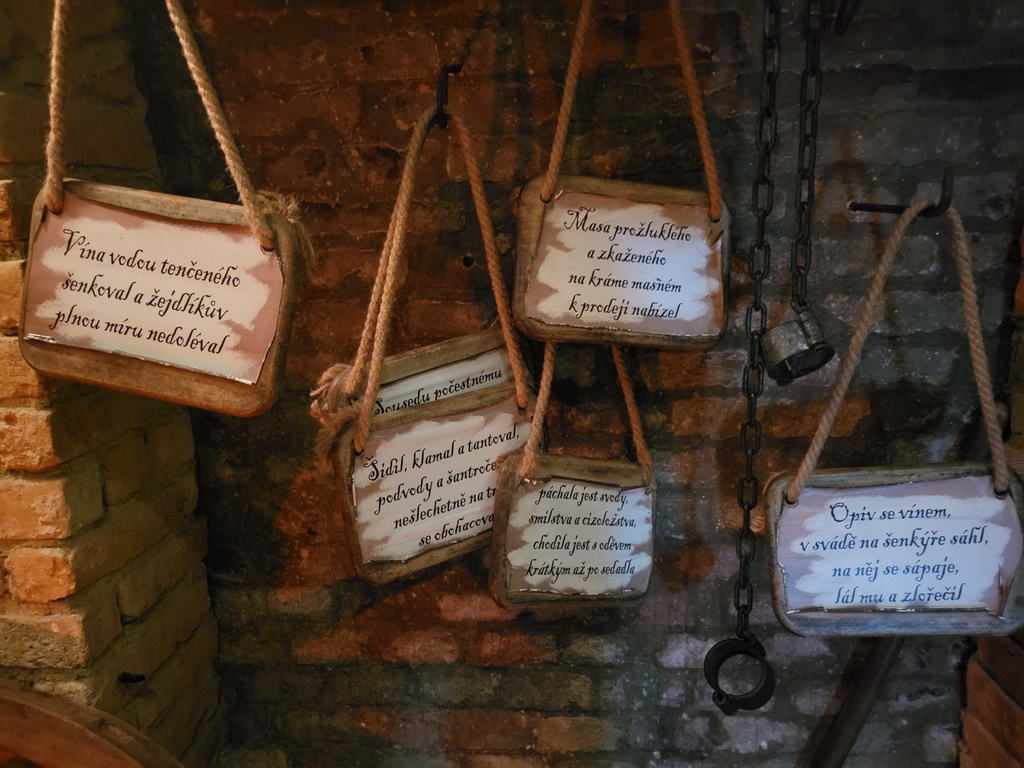 Vína vodou tenčeného
šenkoval a žejdlíkův
plnou míru nedoléval
Sousedu počestnému
Šidil, klamal a tantoval,
podvody a šantroče
nešlechetně na
se obohacova
Masa prožluklého
a zkaženého
na kráme masném
k prodeji nabízel
páchala jest svody,
smilstva a cizoložstva,
chodila jest s oděvem
krátkým až po sedadla
Opiv se vínem,
v svádě na šenkýře sáhl,
na něj se sápaje,
lál mu a zlořečil